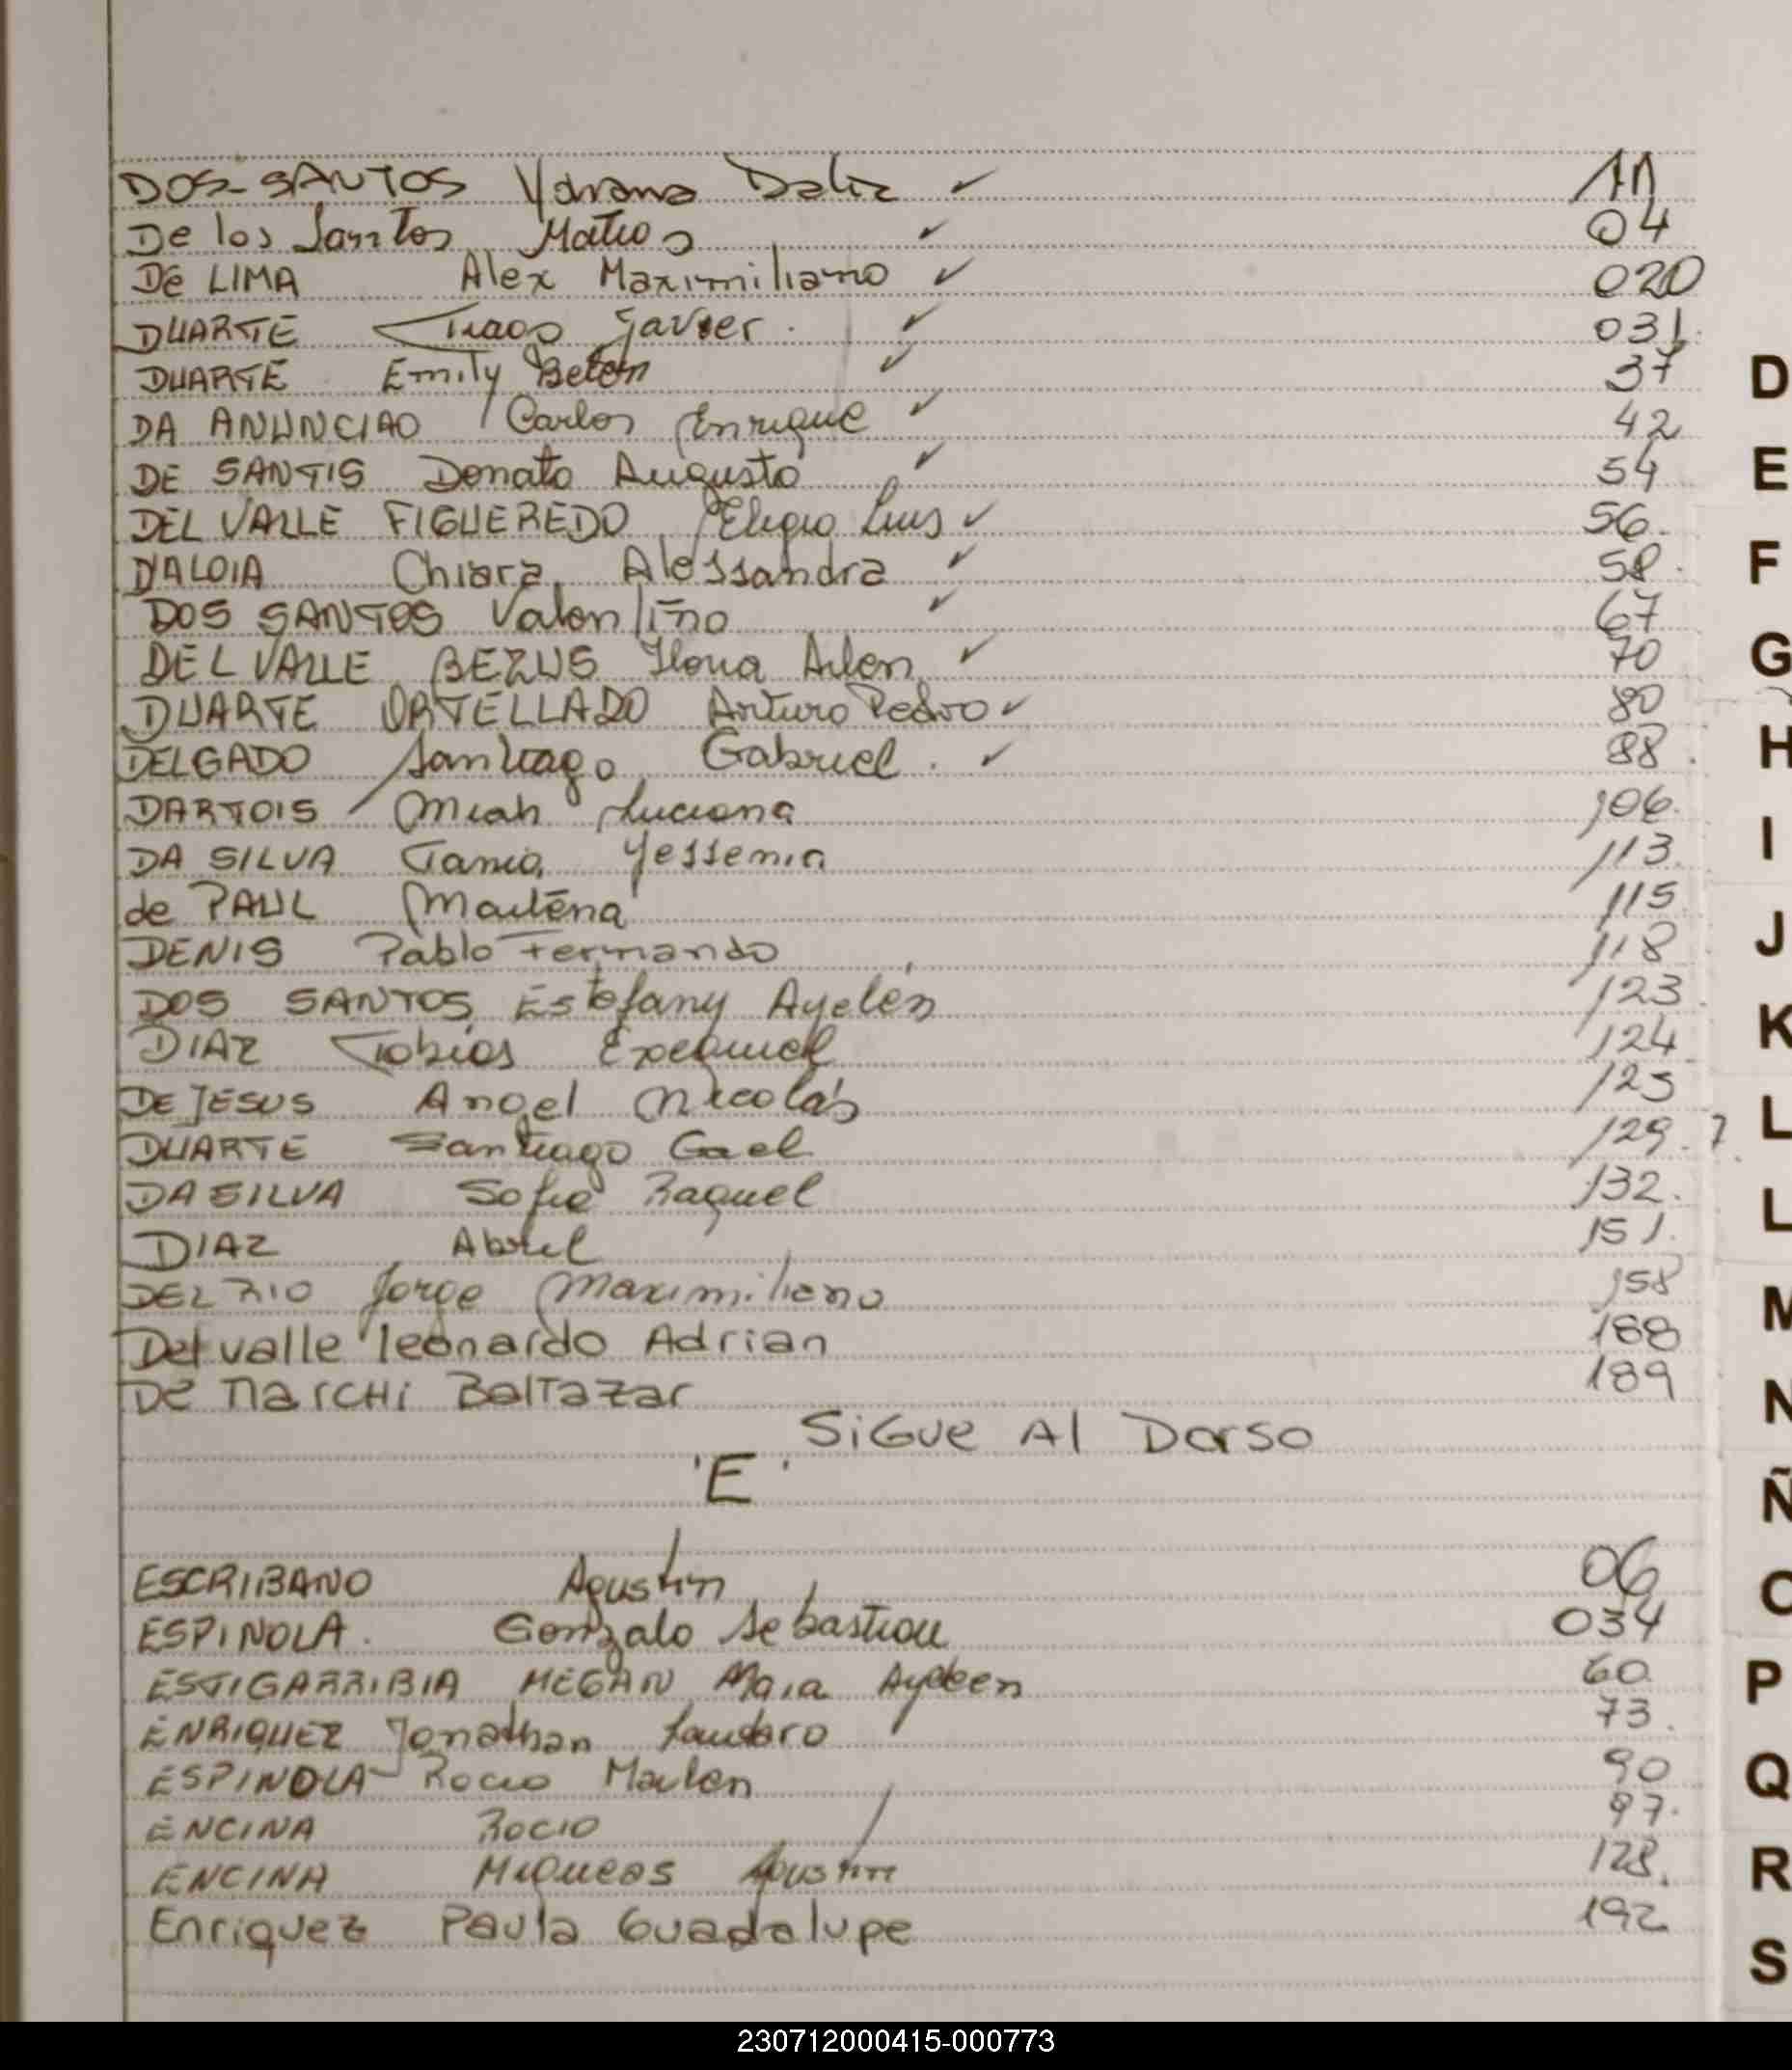 DOS-SANTOS Yohana Daliz ✓ 11
De los Santos Mateo ✓ 04
De LIMA Alex Maximiliano ✓ 020
DUARTE Tiago Javier. ✓ 031.
DUARTE Emily Belén ✓ 37
DA ANUNCIAO Carlos Enrique ✓ 42
DE SANTIS Donato Augusto ✓ 54
DEL VALLE FIGUEREDO Eligio Luis ✓ 56.
D'ALOIA Chiara Alessandra ✓ 58.
DOS SANTOS Valentino ✓ 67
DEL VALLE BEZUS Ilona Ailen ✓ 70
DUARTE ORTELLADO Arturo Pedro ✓ 80
DELGADO Santiago Gabriel. ✓ 88.
DARTOIS Luciana 106.
DA SILVA Tania Yessenia 113.
de PAUL Mailena 115.
DENIS Pablo Fernando 118
DOS SANTOS Estefany Ayelén 123.
DIAZ Tobias Exequiel 124
DE JESUS Angel Nicolás 125
DUARTE Santiago Gael 129.
DA SILVA Sofia Raquel 132.
DIAZ Abril 151.
DEL RIO Jorge Maximiliano 158
Del valle leonardo Adrian 188
De MarCHi BalTazar 189
SiGue Al Dorso
'E'
ESCRIBANO Agustín 06
ESPINOLA. Gonzalo Sebastián 034
ESTIGARRIBIA MEGAN Maia Ayleen 60
ENRIQUEZ Jonathan Lautaro 73.
ESPINOLA Rocio Mailen 90
ENCINA Rocio 97.
ENCINA Miqueas Agustín 128.
Enriquez Paula Guadalupe 192
D
E
F
G
H
I
J
K
L
L
M
N
Ñ
O
P
Q
R
S
230712000415-000773